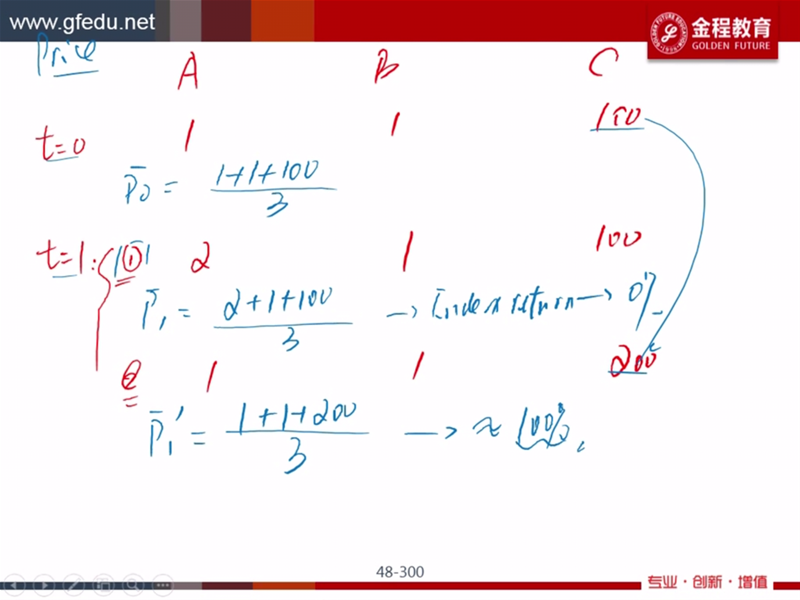 www.gfedu.net
金程教育
GOLDEN FUTURE
Price A B C
t=0 1 1 100
P̄0 = (1+1+100)/3
t=1: ① 2 1 100
P̄1 = (2+1+100)/3 → Index return → 0%
② 1 1 200
P̄1' = (1+1+200)/3 → ≈ 100%
48-300
专业·创新·增值